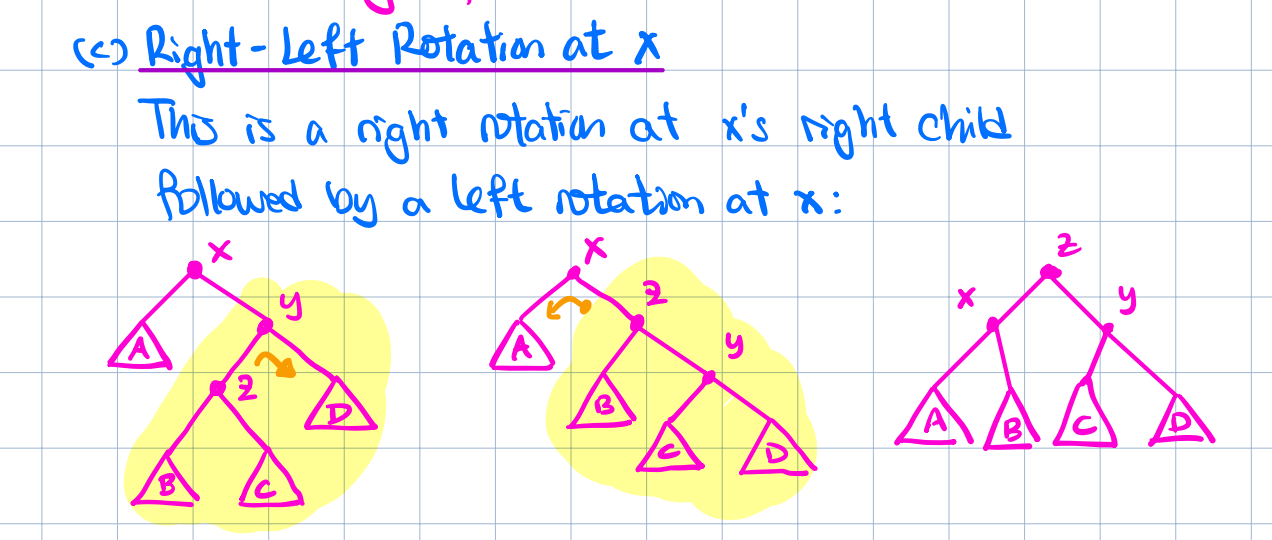 (c) Right-Left Rotation at x
This is a right rotation at x's right child
followed by a left rotation at x:
x x z
y z x y
A A
z D B y A B C D
B C C D